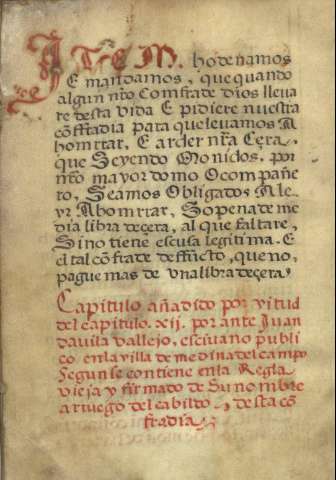 ITEM. hordenamos
E mandamos, que quando
algun nr̃o Comfrade dios lleva
re desta vida E pidiere nuestra
cõffradia para que levamos A
homrrar, E arder nr̃a Cera,
que Seyendo monidos. por
nr̃o mayordomo O compañe
ro, Seamos Obligados A le
yr A homrrar, So pena de me
dia libra de çera, al que faltare,
Si no tiene escusa legitima. E
el tal cõfrade deffũcto, que no
pague mas de vna libra de çera.
Capitulo añadido por virtud
del capitulo. xij. por ante Juan
davila vallejo, escrivano publi
co en la villa de medina del campo
Segun se contiene en la Regla
vieja y firmado de Su nombre
a ruego del cabildo, de sta cõ
fradia